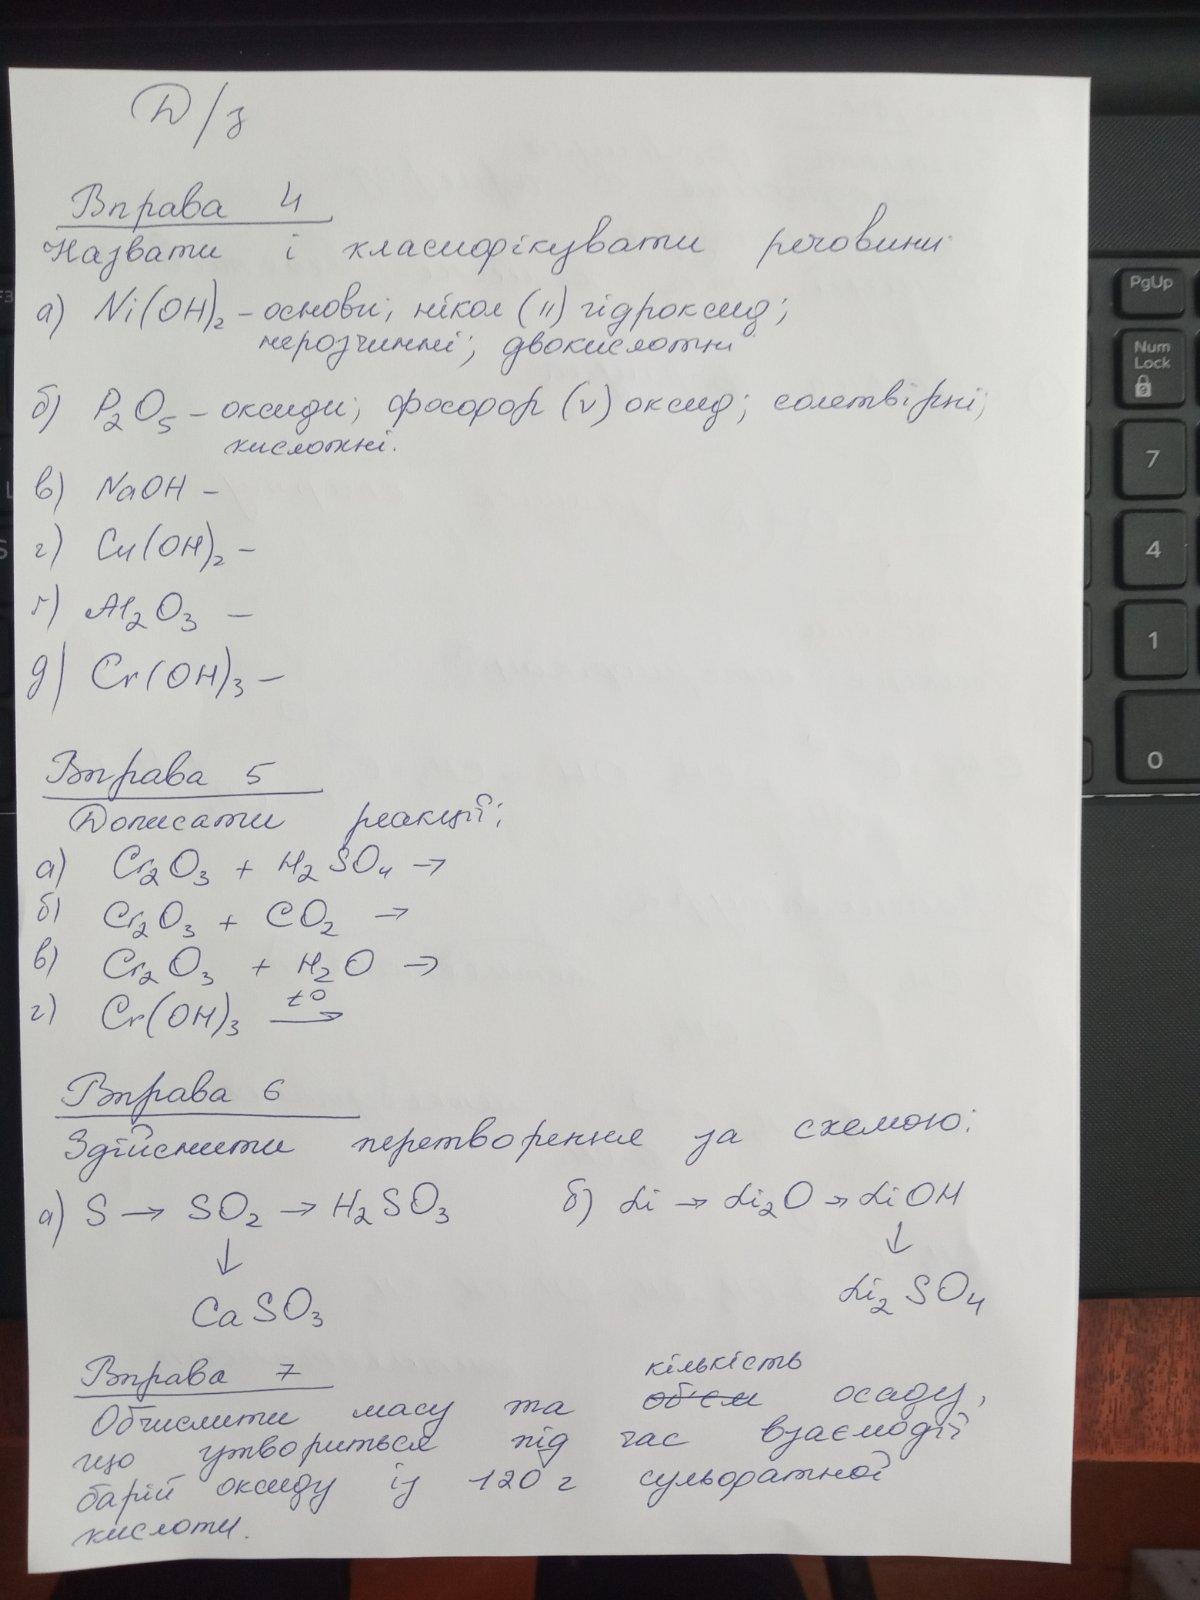 Д/з
Вправа 4
Назвати і класифікувати речовини:
а) Ni(OH)₂ – основи; нікол (II) гідроксид;
нерозчинні; двокислотні
б) P₂O₅ – оксиди; фосфор (V) оксид; солетвірні;
кислотні.
в) NaOH –
г) Cu(OH)₂ –
ґ) Al₂O₃ –
д) Cr(OH)₃ –
Вправа 5
Дописати реакції:
а) Cr₂O₃ + H₂SO₄ →
б) Cr₂O₃ + CO₂ →
в) Cr₂O₃ + H₂O →
г) Cr(OH)₃ t° →
Вправа 6
Здійснити перетворення за схемою:
а) S → SO₂ → H₂SO₃ б) Li → Li₂O → LiOH
↓ ↓
CaSO₃ Li₂SO₄
Вправа 7
кількість
Обчислити масу та об'єм осаду,
що утвориться під час взаємодії
барій оксиду із 120 г сульфатної
кислоти.
PgUp
Num
Lock
7
4
1
0